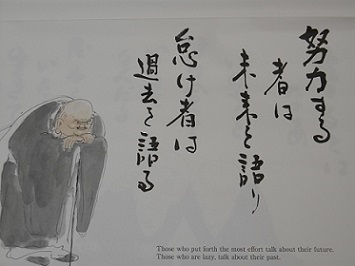 努力する
者は
未来を語り
怠け者は
過去を語る
Those who put forth the most effort talk about their future.
Those who are lazy, talk about their past.